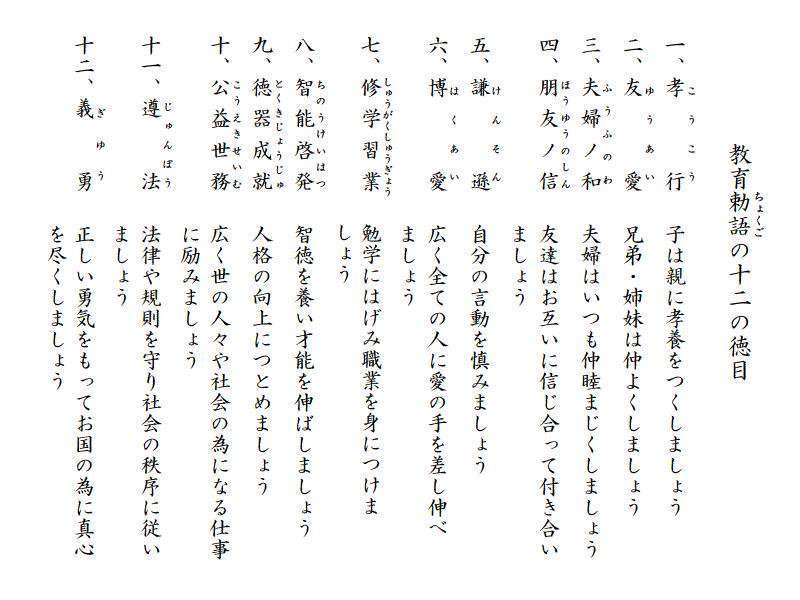 教育勅語の十二の徳目
ちょくご
一、孝行 子は親に孝養をつくしましょう
こうこう
二、友愛 兄弟・姉妹は仲よくしましょう
ゆうあい
三、夫婦ノ和 夫婦はいつも仲睦まじくしましょう
ふうふのわ
四、朋友ノ信 友達はお互いに信じ合って付き合い
ほうゆうのしん
ましょう
五、謙遜 自分の言動を慎みましょう
けんそん
六、博愛 広く全ての人に愛の手を差し伸べ
はくあい
ましょう
七、修学習業 勉学にはげみ職業を身につけま
しゅうがくしゅうぎょう
しょう
八、智能啓発 智徳を養い才能を伸ばしましょう
ちのうけいはつ
九、徳器成就 人格の向上につとめましょう
とくきじょうじゅ
十、公益世務 広く世の人々や社会の為になる仕事
こうえきせいむ
に励みましょう
十一、遵法 法律や規則を守り社会の秩序に従い
じゅんぽう
ましょう
十二、義勇 正しい勇気をもってお国の為に真心
ぎゆう
を尽くしましょう